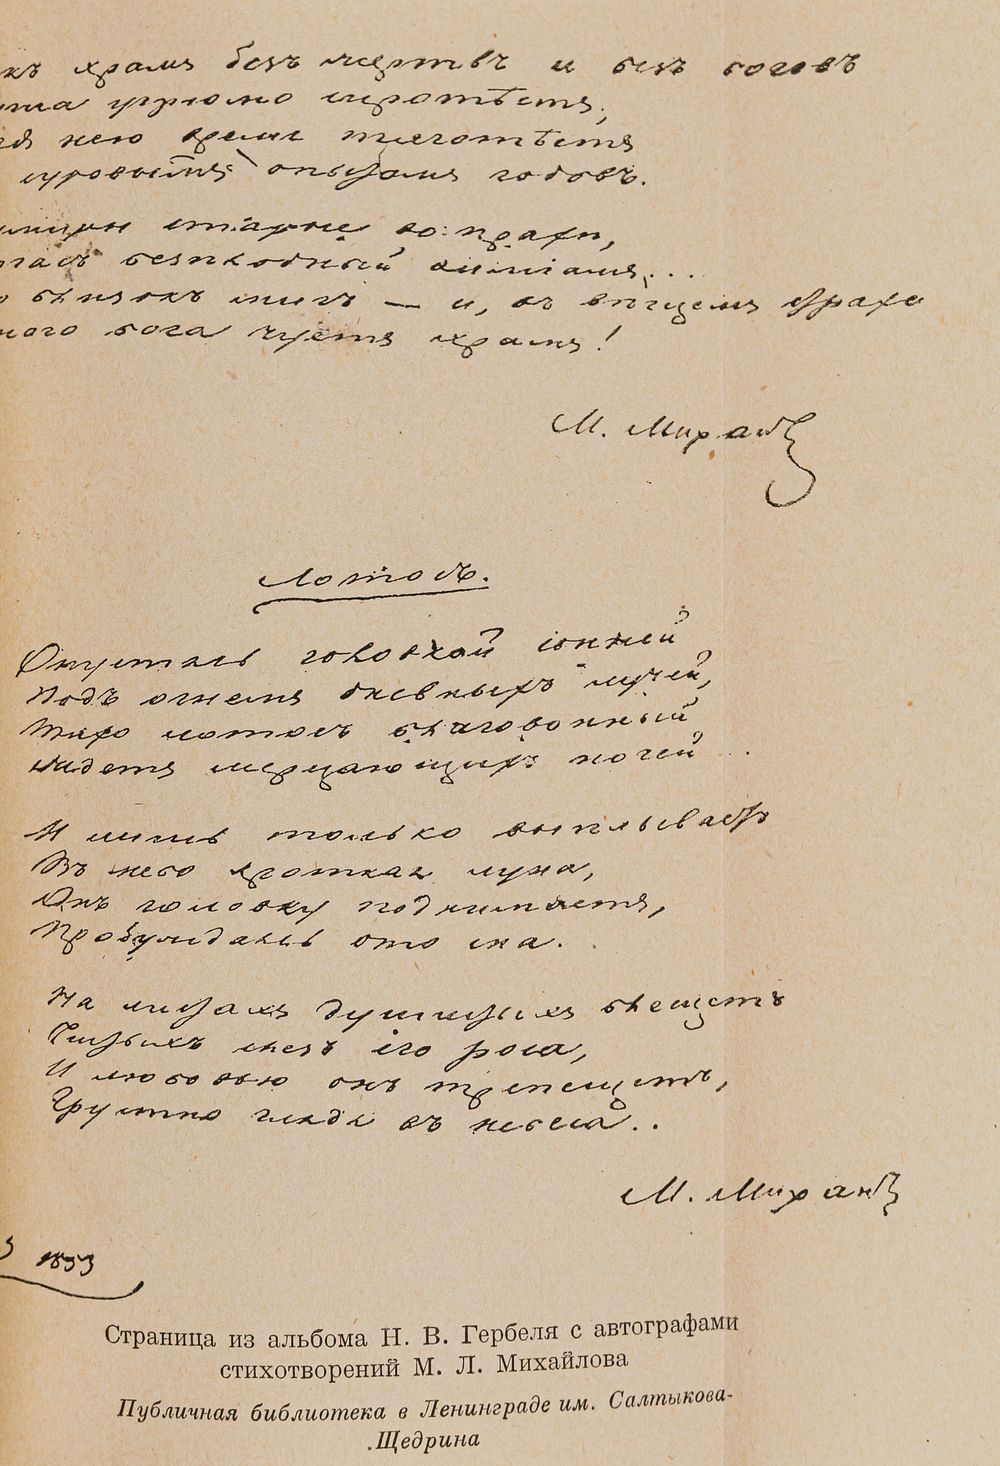 храмъ безъ жертвъ и безъ боговъ
угрюмо сиротѣетъ,
нею время тяготѣетъ
суровымъ опытомъ годовъ.
старые во прахѣ,
безплодный ѳиміамъ...
близокъ мигъ — и, въ вѣщемъ страхѣ
бога чуетъ храмъ!
М. Михайловъ
Лотосъ.
Опустясь головкой сонной
Подъ огнемъ дневныхъ лучей,
Тихо лотосъ благовонный
Ждетъ мерцающихъ ночей
И лишь только выплываетъ
Въ небо кроткая луна,
Онъ головку поднимаетъ,
Пробуждаясь ото сна.
На листахъ душистыхъ блещетъ
Чистыхъ слезъ его роса,
И любовью онъ трепещетъ,
Грустно глядя въ небеса..
М. Михайловъ
1853
Страница из альбома Н. В. Гербеля с автографами
стихотворений М. Л. Михайлова
Публичная библиотека в Ленинграде им. Салтыкова-
Щедрина